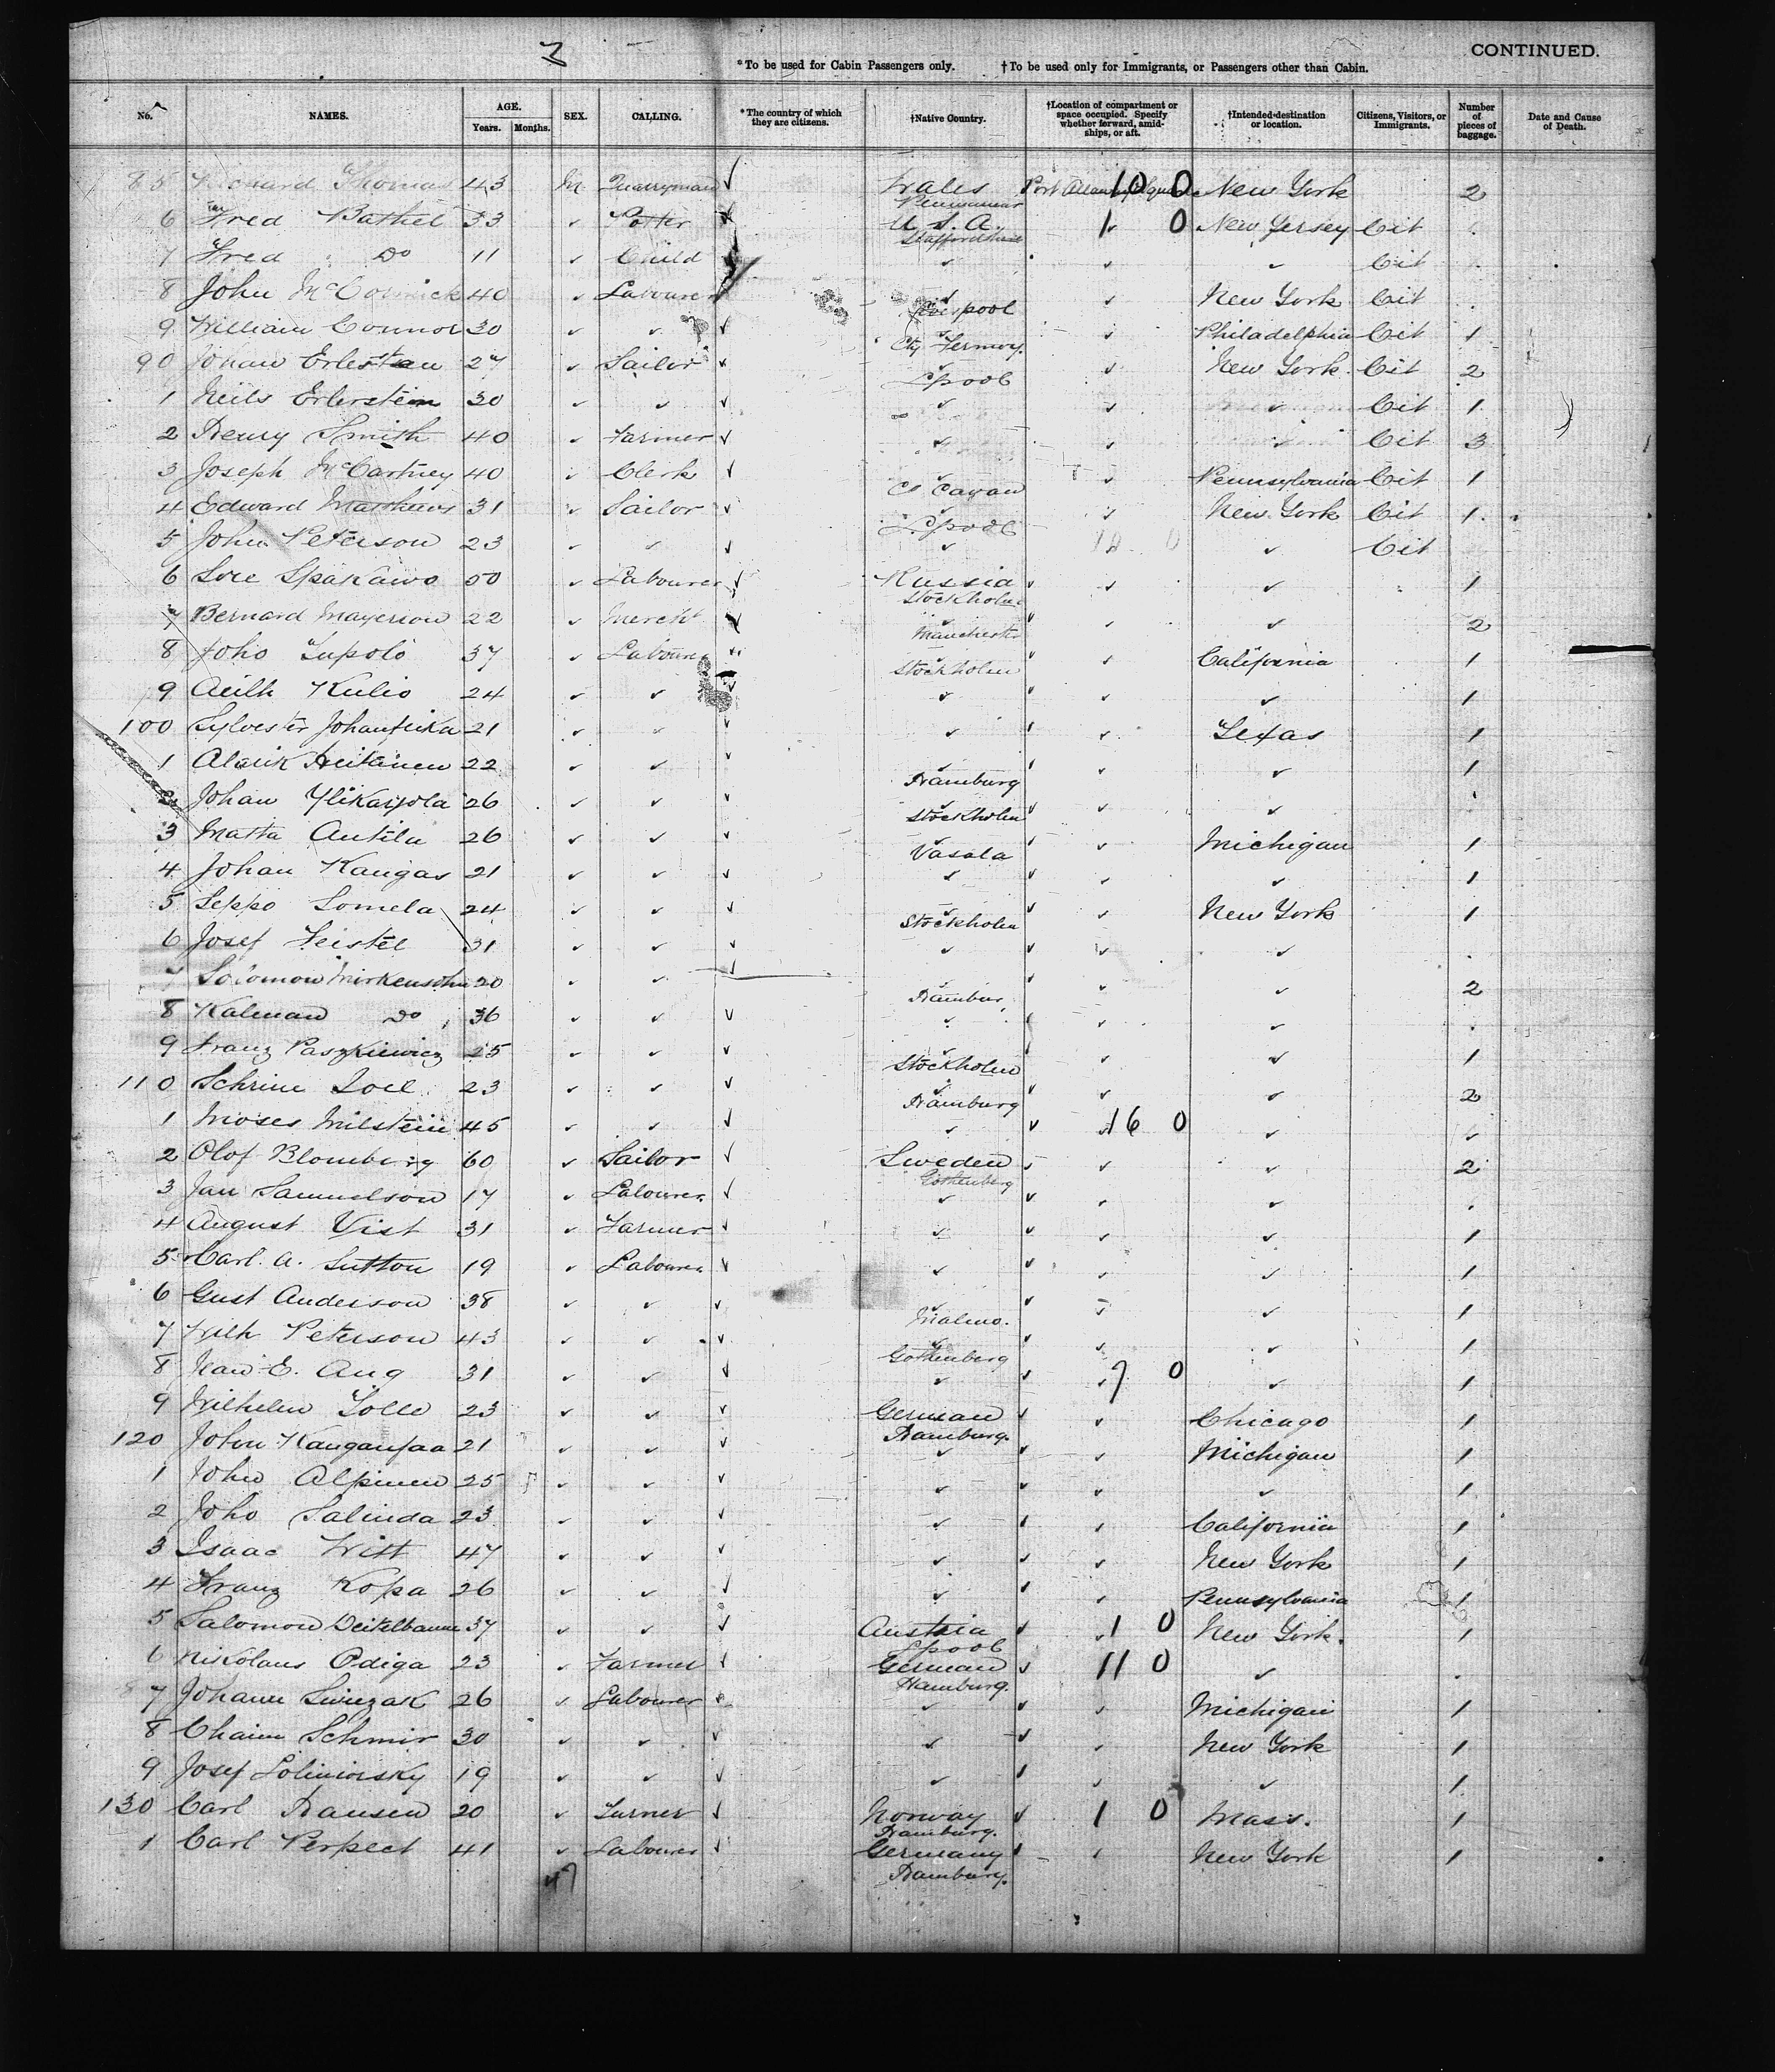 2
CONTINUED.
*To be used for Cabin Passengers only. †To be used only for Immigrants, or Passengers other than Cabin.
No. NAMES. AGE. Years. Months. SEX. CALLING. *The country of which they are citizens. †Native Country. †Location of compartment or space occupied. Specify whether forward, amidships, or aft. †Intended destination or location. Citizens, Visitors, or Immigrants. Number of pieces of baggage. Date and Cause of Death.
85 Richard Thomas 43 M Quarryman ✓ Wales 10 0 New York 2
6 Fred Bathel 33 ✓ Potter U.S.A. Staffordshire 1 0 New Jersey Cit
7 Fred Do 11 ✓ Child ✓ ✓ ✓ Cit
8 John McCormick 40 ✓ Labourer ✓ Liverpool ✓ New York Cit
9 William Connor 30 ✓ ✓ ✓ ✓ Cty Fermoy. ✓ Philadelphia Cit 1
90 Johan 27 ✓ Sailor ✓ ✓ Lpool ✓ New York Cit 2
1 Neils 30 ✓ ✓ ✓ ✓ ✓ ✓ Cit 1
2 Henry Smith 40 ✓ Farmer ✓ ✓ ✓ ✓ Cit 3
3 Joseph McCartney 40 ✓ Clerk ✓ ✓ Co Cavan ✓ Pennsylvania Cit 1
4 Edward Matthews 31 ✓ Sailor ✓ ✓ Lpool ✓ New York Cit 1
5 John Peterson 23 ✓ ✓ ✓ ✓ ✓ Cit
6 50 ✓ Labourer ✓ Russia Stockholm ✓ ✓ ✓ 1
7 Bernard Mayerson 22 ✓ Mercht ✓ ✓ Manchester ✓ ✓ ✓ 2
8 Joho Lupolo 37 ✓ Labourer ✓ Stockholm ✓ ✓ California 1
9 Kulio 24 ✓ ✓ ✓ ✓ ✓ ✓ 1
100 Sylvester 21 ✓ ✓ ✓ ✓ ✓ ✓ Texas 1
1 Alarik Heitanen 22 ✓ ✓ ✓ ✓ Hamburg ✓ ✓ 1
2 Johan 26 ✓ ✓ ✓ ✓ Stockholm ✓ ✓ ✓
3 Matta Antila 26 ✓ ✓ ✓ ✓ Vasala ✓ ✓ Michigan 1
4 Johan Kangas 21 ✓ ✓ ✓ ✓ ✓ ✓ 1
5 Seppo Somela 24 ✓ ✓ ✓ ✓ Stockholm ✓ ✓ New York 1
6 Josef Feistel 31 ✓ ✓ ✓ ✓ ✓ ✓ ✓
7 Solomon Mirkensohn 20 ✓ ✓ ✓ ✓ Hambur ✓ ✓ ✓ 2
8 Kalman Do 36 ✓ ✓ ✓ ✓ ✓ ✓ ✓
9 Franz Paszkiewicz 25 ✓ ✓ ✓ ✓ Stockholm ✓ ✓ 1
110 Schrim 23 ✓ ✓ ✓ ✓ Hamburg ✓ ✓ ✓ 2
1 Moses Milstein 45 ✓ ✓ ✓ ✓ ✓ 16 0 ✓ ✓
2 Olof Blomberg 60 ✓ Sailor ✓ Sweden Gothenberg ✓ ✓ ✓ 2
3 Jan Samuelson 17 ✓ Labourer ✓ ✓ ✓ ✓ ✓
4 August Vist 31 ✓ Farmer ✓ ✓ ✓ ✓ ✓ 1
5 Carl. A. Sutton 19 ✓ Labourer ✓ ✓ ✓ ✓ ✓ 1
6 Gust Anderson 38 ✓ ✓ ✓ ✓ Malmo. ✓ ✓ ✓ 1
7 Wilh Peterson 43 ✓ ✓ ✓ ✓ Gothenberg ✓ ✓ ✓ 1
8 E. Aug 31 ✓ ✓ ✓ ✓ ✓ 7 0 ✓ 1
9 Wilhelm 23 ✓ ✓ ✓ German Hamburg. ✓ ✓ Chicago 1
120 John 21 ✓ ✓ ✓ ✓ ✓ ✓ Michigan 1
1 John Alpinen 25 ✓ ✓ ✓ ✓ ✓ ✓ ✓ 1
2 Joho Salinda 23 ✓ ✓ ✓ ✓ ✓ ✓ California 1
3 Isaac Witt 47 ✓ ✓ ✓ ✓ ✓ ✓ New York 1
4 Franz Kopa 26 ✓ ✓ ✓ ✓ ✓ ✓ Pennsylvania 1
5 Salomon Deitelbaum 37 ✓ ✓ ✓ Austria Lpool ✓ 1 0 New York. 1
6 Nikolaus Odiga 23 ✓ Farmer ✓ German Hamburg. ✓ 11 0 ✓
7 Johann 26 ✓ Labourer ✓ ✓ ✓ Michigan 1
8 Chaim Schmir 30 ✓ ✓ ✓ ✓ ✓ ✓ New York 1
9 Josef 19 ✓ ✓ ✓ ✓ ✓ ✓ ✓ 1
130 Carl Hansen 20 ✓ Turner ✓ Norway Hamburg. ✓ 1 0 Mass. 1
1 Carl Perpect 41 ✓ Labourer ✓ Germany Hamburg. ✓ New York 1
47